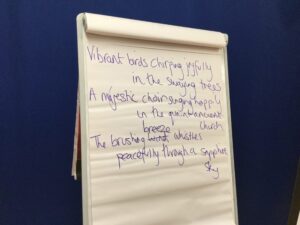 Vibrant birds chirping joyfully
in the swaying trees
A majestic choir singing happy
in the quaint ancient
church
The brushing breeze whistles
peacefully through a sapphire
sky